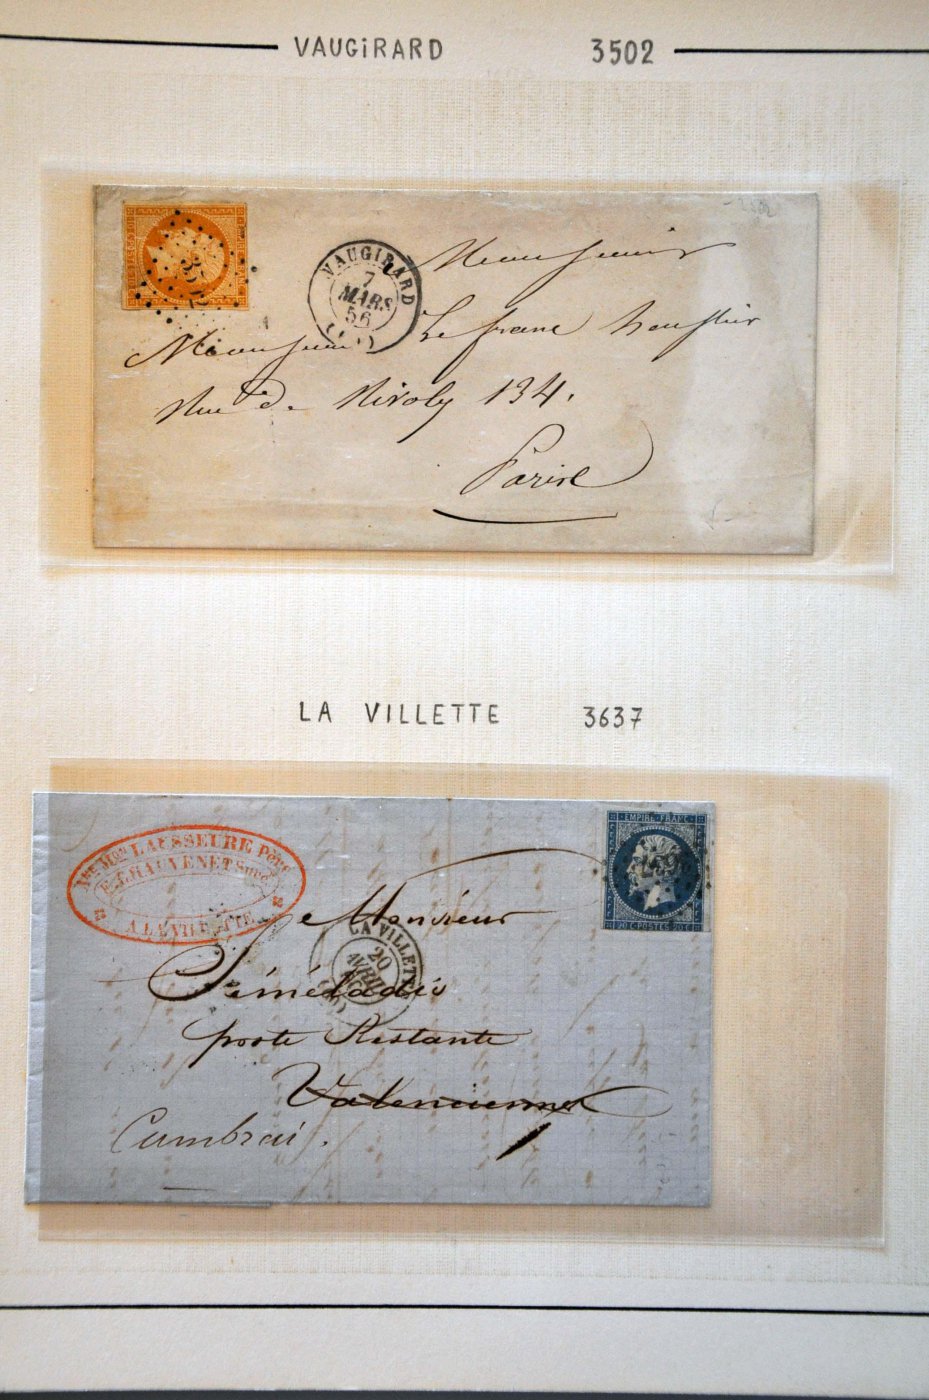 VAUGiRARD 3502
3502
VAUGIRARD
7
MARS
56
Monsieur
Monsieur Lefranc
Rue de Rivoly 134.
Paris
LA VILLETTE 3637
LAUSSEURE Père
E. J. HAUVENET Succr
A LA VILLETTE
EMPIRE FRANC
20 C POSTES 20 C
Monsieur
LA VILLETTE
20
AVRIL
Séméladis
poste Restante
Valenciennes
Cambrai.